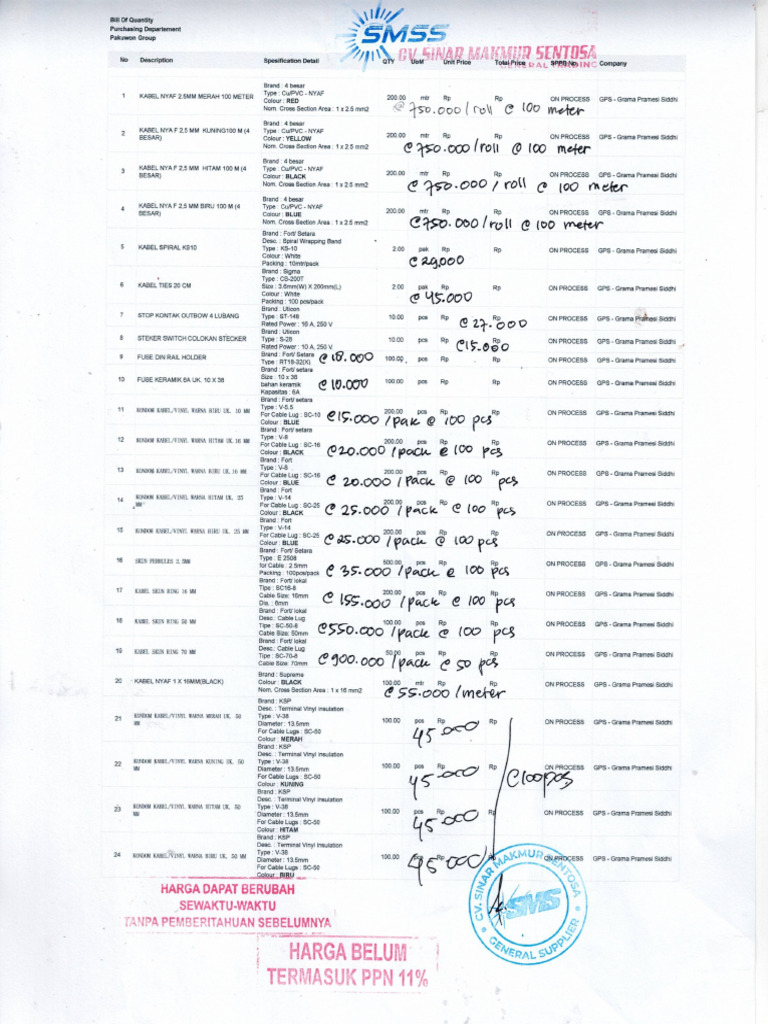 Bill Of Quantity
Purchasing Departement
Pakuwon Group
SMSS
CV. SINAR MAKMUR SENTOSA
GENERAL TRADING
No Description Spesification Detail QTY UoM Unit Price Total Price SPPB No Company
1 KABEL NYAF 2.5MM MERAH 100 METER
Brand : 4 besar
Type : Cu/PVC - NYAF
Colour : RED
Nom. Cross Section Area : 1 x 2.5 mm2
200.00 mtr Rp Rp ON PROCESS GPS - Grama Pramesi Siddhi
@ 750.000/roll @ 100 meter
2 KABEL NYA F 2,5 MM KUNING100 M (4 BESAR)
Brand : 4 besar
Type : Cu/PVC - NYAF
Colour : YELLOW
Nom. Cross Section Area : 1 x 2.5 mm2
200.00 mtr Rp Rp ON PROCESS GPS - Grama Pramesi Siddhi
@ 750.000/roll @ 100 meter
3 KABEL NYA F 2,5 MM HITAM 100 M (4 BESAR)
Brand : 4 besar
Type : Cu/PVC - NYAF
Colour : BLACK
Nom. Cross Section Area : 1 x 2.5 mm2
200.00 mtr Rp Rp ON PROCESS GPS - Grama Pramesi Siddhi
@ 750.000/roll @ 100 meter
4 KABEL NYA F 2,5 MM BIRU 100 M (4 BESAR)
Brand : 4 besar
Type : Cu/PVC - NYAF
Colour : BLUE
Nom. Cross Section Area : 1 x 2.5 mm2
200.00 mtr Rp Rp ON PROCESS GPS - Grama Pramesi Siddhi
@ 750.000/roll @ 100 meter
5 KABEL SPIRAL KS10
Brand : Fort/ Setara
Desc. : Spiral Wrapping Band
Type : KS-10
Colour : White
Packing : 10mtr/pack
2.00 pak Rp Rp ON PROCESS GPS - Grama Pramesi Siddhi
@ 29,000
6 KABEL TIES 20 CM
Brand : Sigma
Type : CS-200T
Size : 3.6mm(W) X 200mm(L)
Colour : White
Packing : 100 pcs/pack
2.00 pak Rp Rp ON PROCESS GPS - Grama Pramesi Siddhi
@ 45.000
7 STOP KONTAK OUTBOW 4 LUBANG
Brand : Uticon
Type : ST-148
Rated Power : 16 A, 250 V
10.00 pcs Rp Rp ON PROCESS GPS - Grama Pramesi Siddhi
@ 27.000
8 STEKER SWITCH COLOKAN STECKER
Brand : Uticon
Type : S-28
Rated Power : 10 A, 250 V.
10.00 pcs Rp Rp ON PROCESS GPS - Grama Pramesi Siddhi
@ 15.000
9 FUSE DIN RAIL HOLDER
Brand : Fort/ Setara
Type : RT18-32(X)
@ 18.000
100.00 pcs Rp Rp ON PROCESS GPS - Grama Pramesi Siddhi
10 FUSE KERAMIK 6A UK. 10 X 38
Brand : Fort/ setara
Size : 10 x 38
bahan keramik
Kapasitas : 6A
@ 10.000
100.00 pcs Rp Rp ON PROCESS GPS - Grama Pramesi Siddhi
11 KONDOM KABEL/VINYL WARNA BIRU UK. 10 MM
Brand : Fort/ setara
Type : V-5.5
For Cable Lug : SC-10
Colour : BLUE
200.00 pcs Rp Rp ON PROCESS GPS - Grama Pramesi Siddhi
@ 15.000/pak @ 100 pcs
12 KONDOM KABEL/VINYL WARNA HITAM UK.16 MM
Brand : Fort/ setara
Type : V-8
For Cable Lug : SC-16
Colour : BLACK
200.00 pcs Rp Rp ON PROCESS GPS - Grama Pramesi Siddhi
@ 20.000/pack @ 100 pcs
13 KONDOM KABEL/VINYL WARNA BIRU UK.16 MM
Brand : Fort
Type : V-8
For Cable Lug : SC-16
Colour : BLUE
200.00 pcs Rp Rp ON PROCESS GPS - Grama Pramesi Siddhi
@ 20.000/pack @ 100 pcs
14 KONDOM KABEL/VINYL WARNA HITAM UK. 25 MM
Brand : Fort
Type : V-14
For Cable Lug : SC-25
Colour : BLACK
200.00 pcs Rp Rp ON PROCESS GPS - Grama Pramesi Siddhi
@ 25.000/pack @ 100 pcs
15 KONDOM KABEL/VINYL WARNA BIRU UK. 25 MM
Brand : Fort
Type : V-14
For Cable Lug : SC-25
Colour : BLUE
200.00 pcs Rp Rp ON PROCESS GPS - Grama Pramesi Siddhi
@ 25.000/pack @ 100 pcs
16 SKUN FERRULES 2.5MM
Brand : Fort/ Setara
Type : E 2508
for Cable : 2.5mm
Packing : 100pcs/pack
500.00 pcs Rp Rp ON PROCESS GPS - Grama Pramesi Siddhi
@ 35.000/pack @ 100 pcs
17 KABEL SKUN RING 16 MM
Brand : Fort/ lokal
Tipe : SC16-8
Cable Size: 16mm
Dia. : 8mm
200.00 pcs Rp Rp ON PROCESS GPS - Grama Pramesi Siddhi
@ 155.000/pack @ 100 pcs
18 KABEL SKUN RING 50 MM
Brand : Fort/ lokal
Desc.: Cable Lug
Tipe : SC-50-8
Cable Size: 50mm
100.00 pcs Rp Rp ON PROCESS GPS - Grama Pramesi Siddhi
@ 550.000/pack @ 100 pcs
19 KABEL SKUN RING 70 MM
Brand : Fort/ lokal
Desc.: Cable Lug
Tipe : SC-70-8
Cable Size: 70mm
50.00 pcs Rp Rp ON PROCESS GPS - Grama Pramesi Siddhi
@ 900.000/pack @ 50 pcs
20 KABEL NYAF 1 X 16MM(BLACK)
Brand : Supreme
Colour : BLACK
Nom. Cross Section Area : 1 x 16 mm2
100.00 mtr Rp Rp ON PROCESS GPS - Grama Pramesi Siddhi
@ 55.000/meter
21 KONDOM KABEL/VINYL WARNA MERAH UK. 50 MM
Brand : KSP
Desc. : Terminal Vinyl Insulation
Type : V-38
Diameter : 13.5mm
For Cable Lugs : SC-50
Colour : MERAH
100.00 pcs Rp Rp ON PROCESS GPS - Grama Pramesi Siddhi
45.000
22 KONDOM KABEL/VINYL WARNA KUNING UK. 50 MM
Brand : KSP
Desc. : Terminal Vinyl Insulation
Type : V-38
Diameter : 13.5mm
For Cable Lugs : SC-50
Colour : KUNING
100.00 pcs Rp Rp ON PROCESS GPS - Grama Pramesi Siddhi
45.000
@ 100 pcs
23 KONDOM KABEL/VINYL WARNA HITAM UK. 50 MM
Brand : KSP
Desc. : Terminal Vinyl Insulation
Type : V-38
Diameter : 13.5mm
For Cable Lugs : SC-50
Colour : HITAM
100.00 pcs Rp Rp ON PROCESS GPS - Grama Pramesi Siddhi
45.000
24 KONDOM KABEL/VINYL WARNA BIRU UK. 50 MM
Brand : KSP
Desc. : Terminal Vinyl Insulation
Type : V-38
Diameter : 13.5mm
For Cable Lugs : SC-50
Colour : BIRU
100.00 Rp ON PROCESS GPS - Grama Pramesi Siddhi
45.000
HARGA DAPAT BERUBAH
SEWAKTU-WAKTU
TANPA PEMBERITAHUAN SEBELUMNYA
HARGA BELUM
TERMASUK PPN 11%
CV. SINAR MAKMUR SENTOSA
SMS
GENERAL SUPPLIER